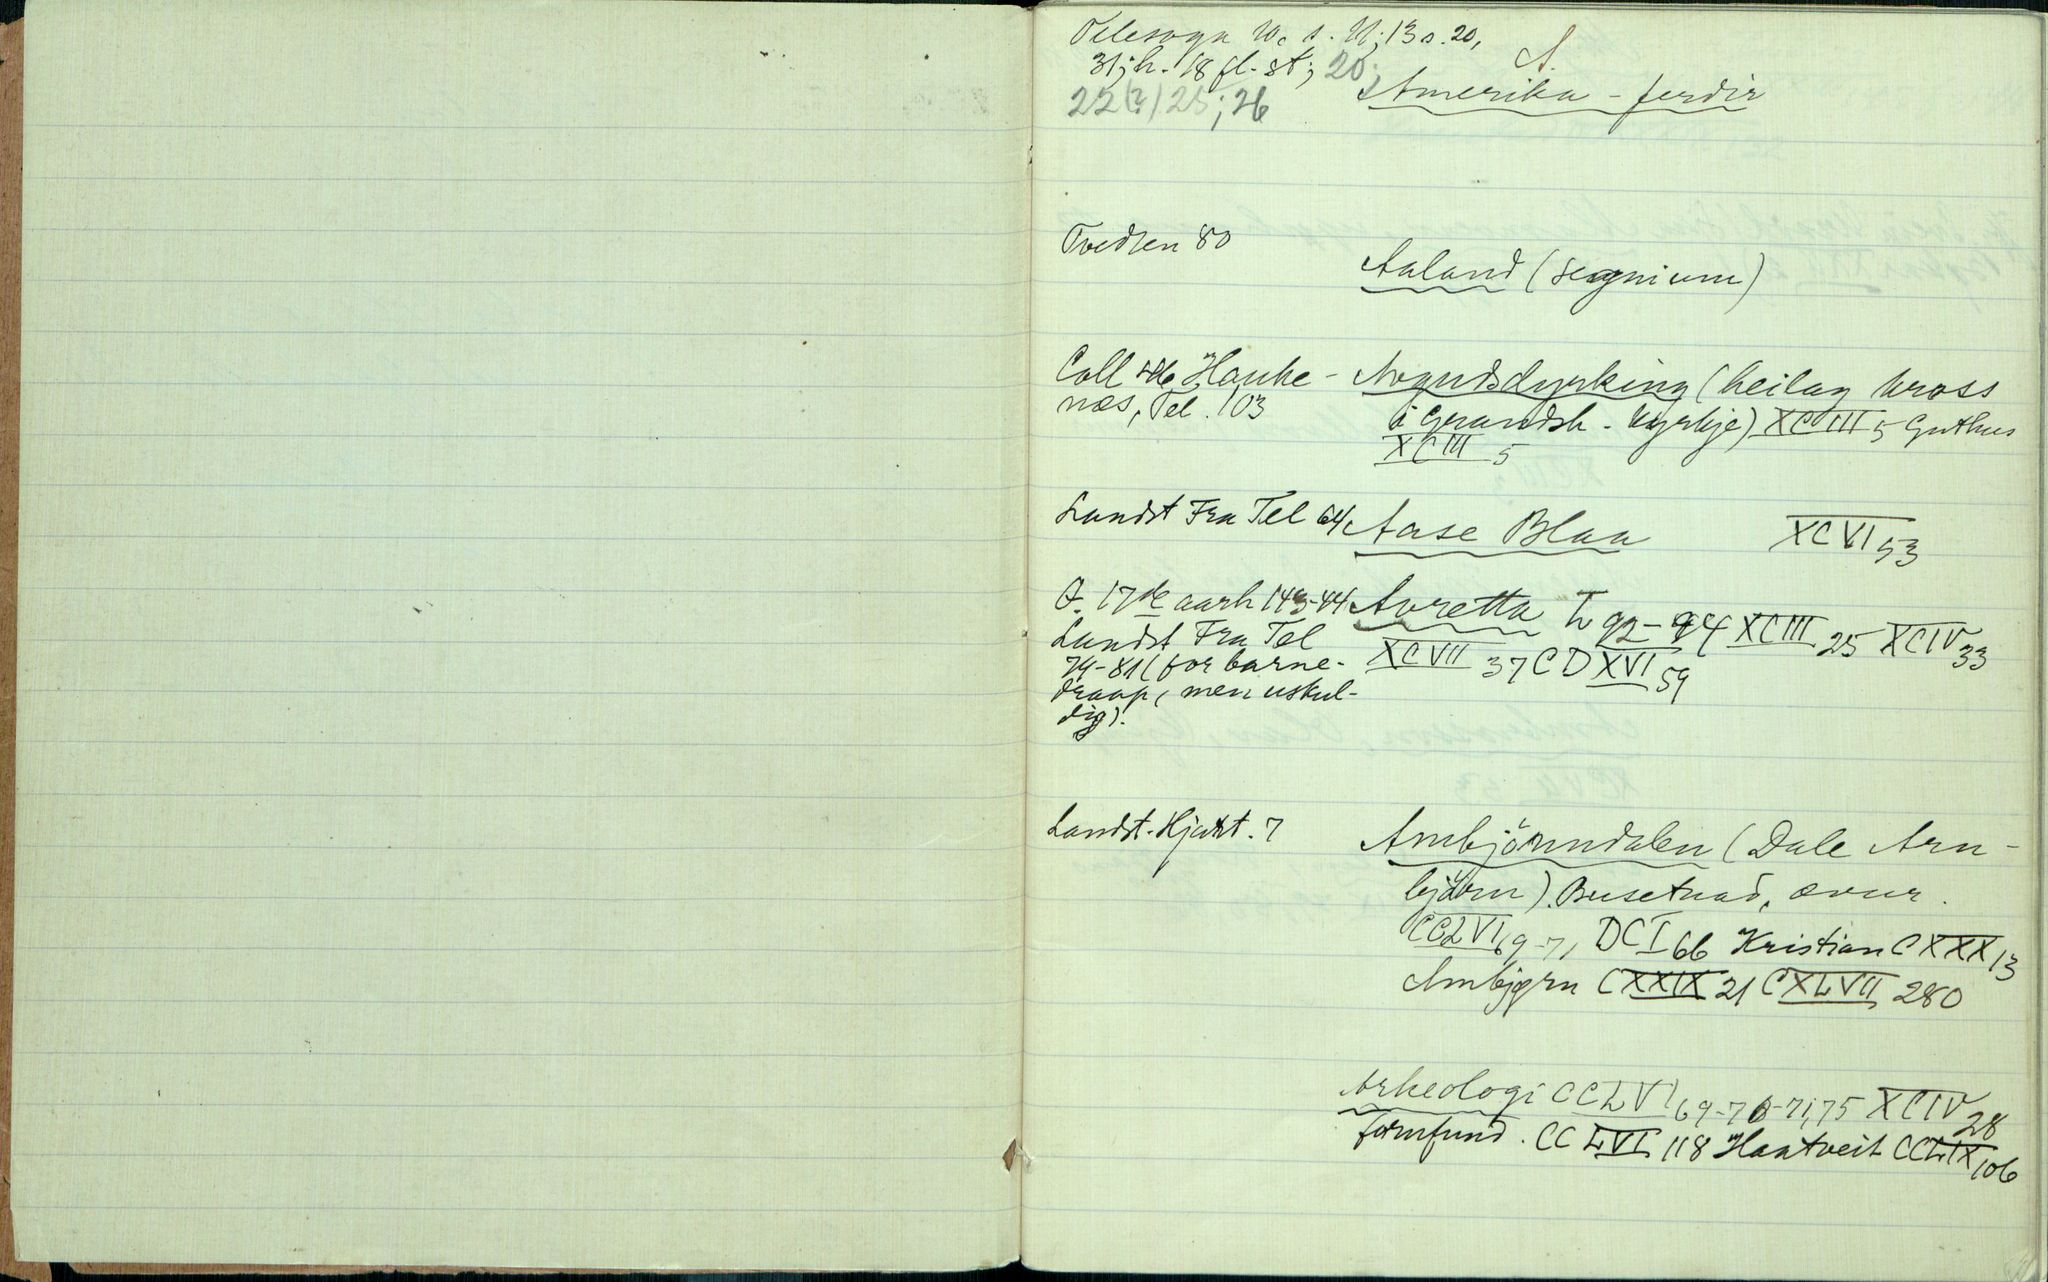 Telesoga No s. 11; 13 s. 20,
31; h. 18 fl. st; 20;
22(?) 25; 26
A.
Amerika-ferdir
Tvedten 80
Aaland (segnium)
Coll 46, Hauke-
næs, Tel. 103
Avgudsdyrking (heilag kross
i Gransh. kyrkje) XCIII 5 Guthus
XCIII 5
Landst Fra Tel 64
Aase Blaa XCVI 53
17de aarh 143-44
Landst Fra Tel
79-81 (for barne-
draap, men uskul-
dig).
Avretta L 92-94 XCIII 25 XCIV 33
XCVII 37 CDXVI 59
Landst. Hjart. 7
Ambjörndalen (Dale Arn-
björn). Busetnad, ovur.
CCLVI 69-71 DCI 66 Kristian CXXX 13
Ambjørn CXXIX 21 CXLVII 280
Arkeologi CCLVI 69-70-71, 75 XCIV 28
Fornfund. CCLVI 118 Haatveit CCLIX 106